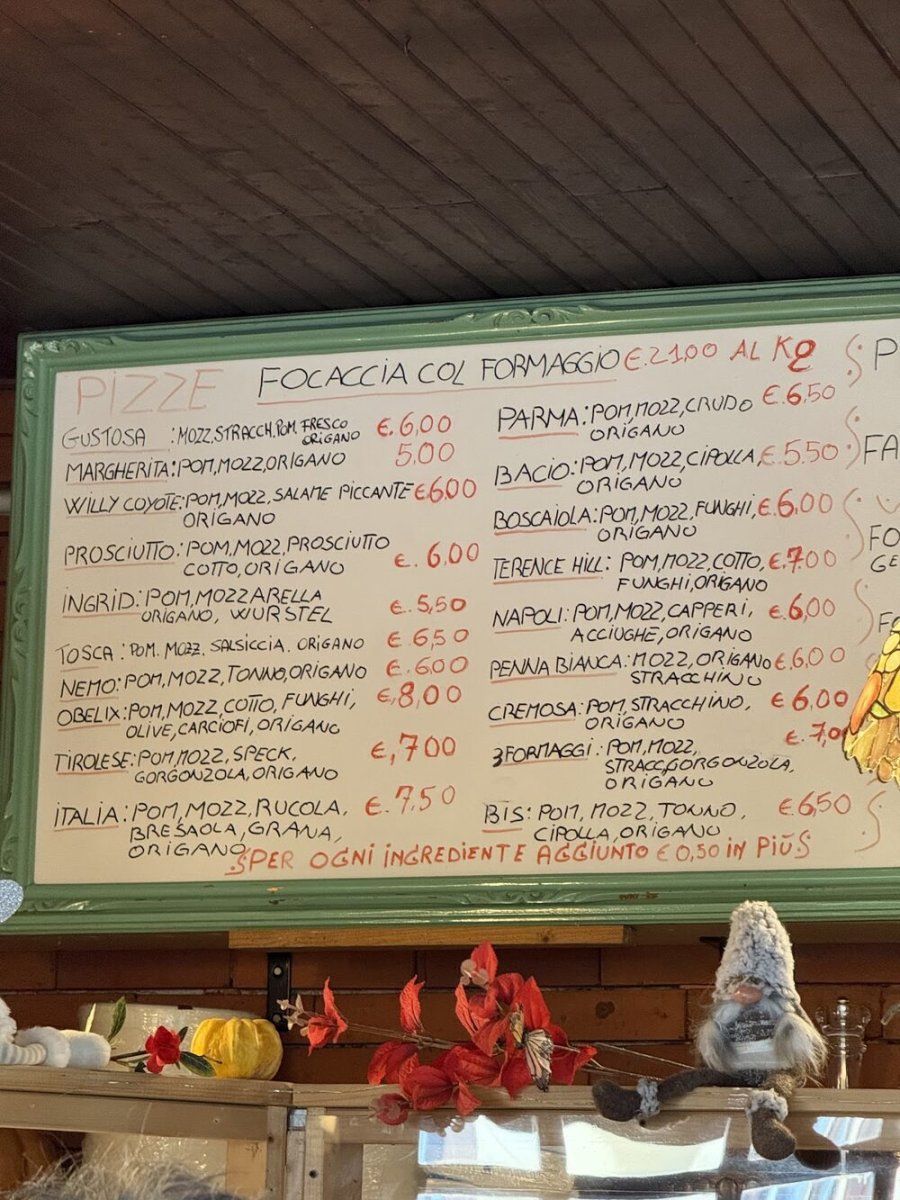 PIZZE
FOCACCIA COL FORMAGGIO €.21,00 AL Kg
GUSTOSA : MOZZ, STRACCH. POM. FRESCO €. 6,00
ORIGANO
MARGHERITA: POM, MOZZ, ORIGANO 5.00
WILLY COYOTE: POM, MOZZ, SALAME PICCANTE €6,00
ORIGANO
PROSCIUTTO: POM, MOZZ, PROSCIUTTO
COTTO, ORIGANO €. 6,00
INGRID: POM, MOZZARELLA
ORIGANO, WURSTEL €. 5,50
TOSCA: POM. MOZZ. SALSICCIA. ORIGANO €. 6,50
NEMO: POM, MOZZ, TONNO, ORIGANO €. 6.00
OBELIX: POM, MOZZ, COTTO, FUNGHI, €, 8,00
OLIVE, CARCIOFI, ORIGANO
TIROLESE: POM, MOZZ, SPECK, €, 7,00
GORGONZOLA, ORIGANO
ITALIA: POM, MOZZ, RUCOLA, €. 7.50
BRESAOLA, GRANA,
ORIGANO
PARMA: POM, MOZZ, CRUDO €. 6,50
ORIGANO
BACIO: POM, MOZZ, CIPOLLA, €. 5.50
ORIGANO
BOSCAIOLA: POM, MOZZ, FUNGHI, €. 6,00
ORIGANO
TERENCE HILL: POM, MOZZ, COTTO, €. 7,00
FUNGHI, ORIGANO
NAPOLI: POM, MOZZ, CAPPERI, €. 6,00
ACCIUGHE, ORIGANO
PENNA BIANCA: MOZZ, ORIGANO €. 6,00
STRACCHINO
CREMOSA: POM, STRACCHINO, € 6,00
ORIGANO
3 FORMAGGI: POM, MOZZ, €. 7,00
STRACC, GORGONZOLA,
ORIGANO
BIS: POM, MOZZ, TONNO, €. 6,50
CIPOLLA, ORIGANO
PER OGNI INGREDIENTE AGGIUNTO € 0,50 IN PIÙ
P
FA
FO
GE